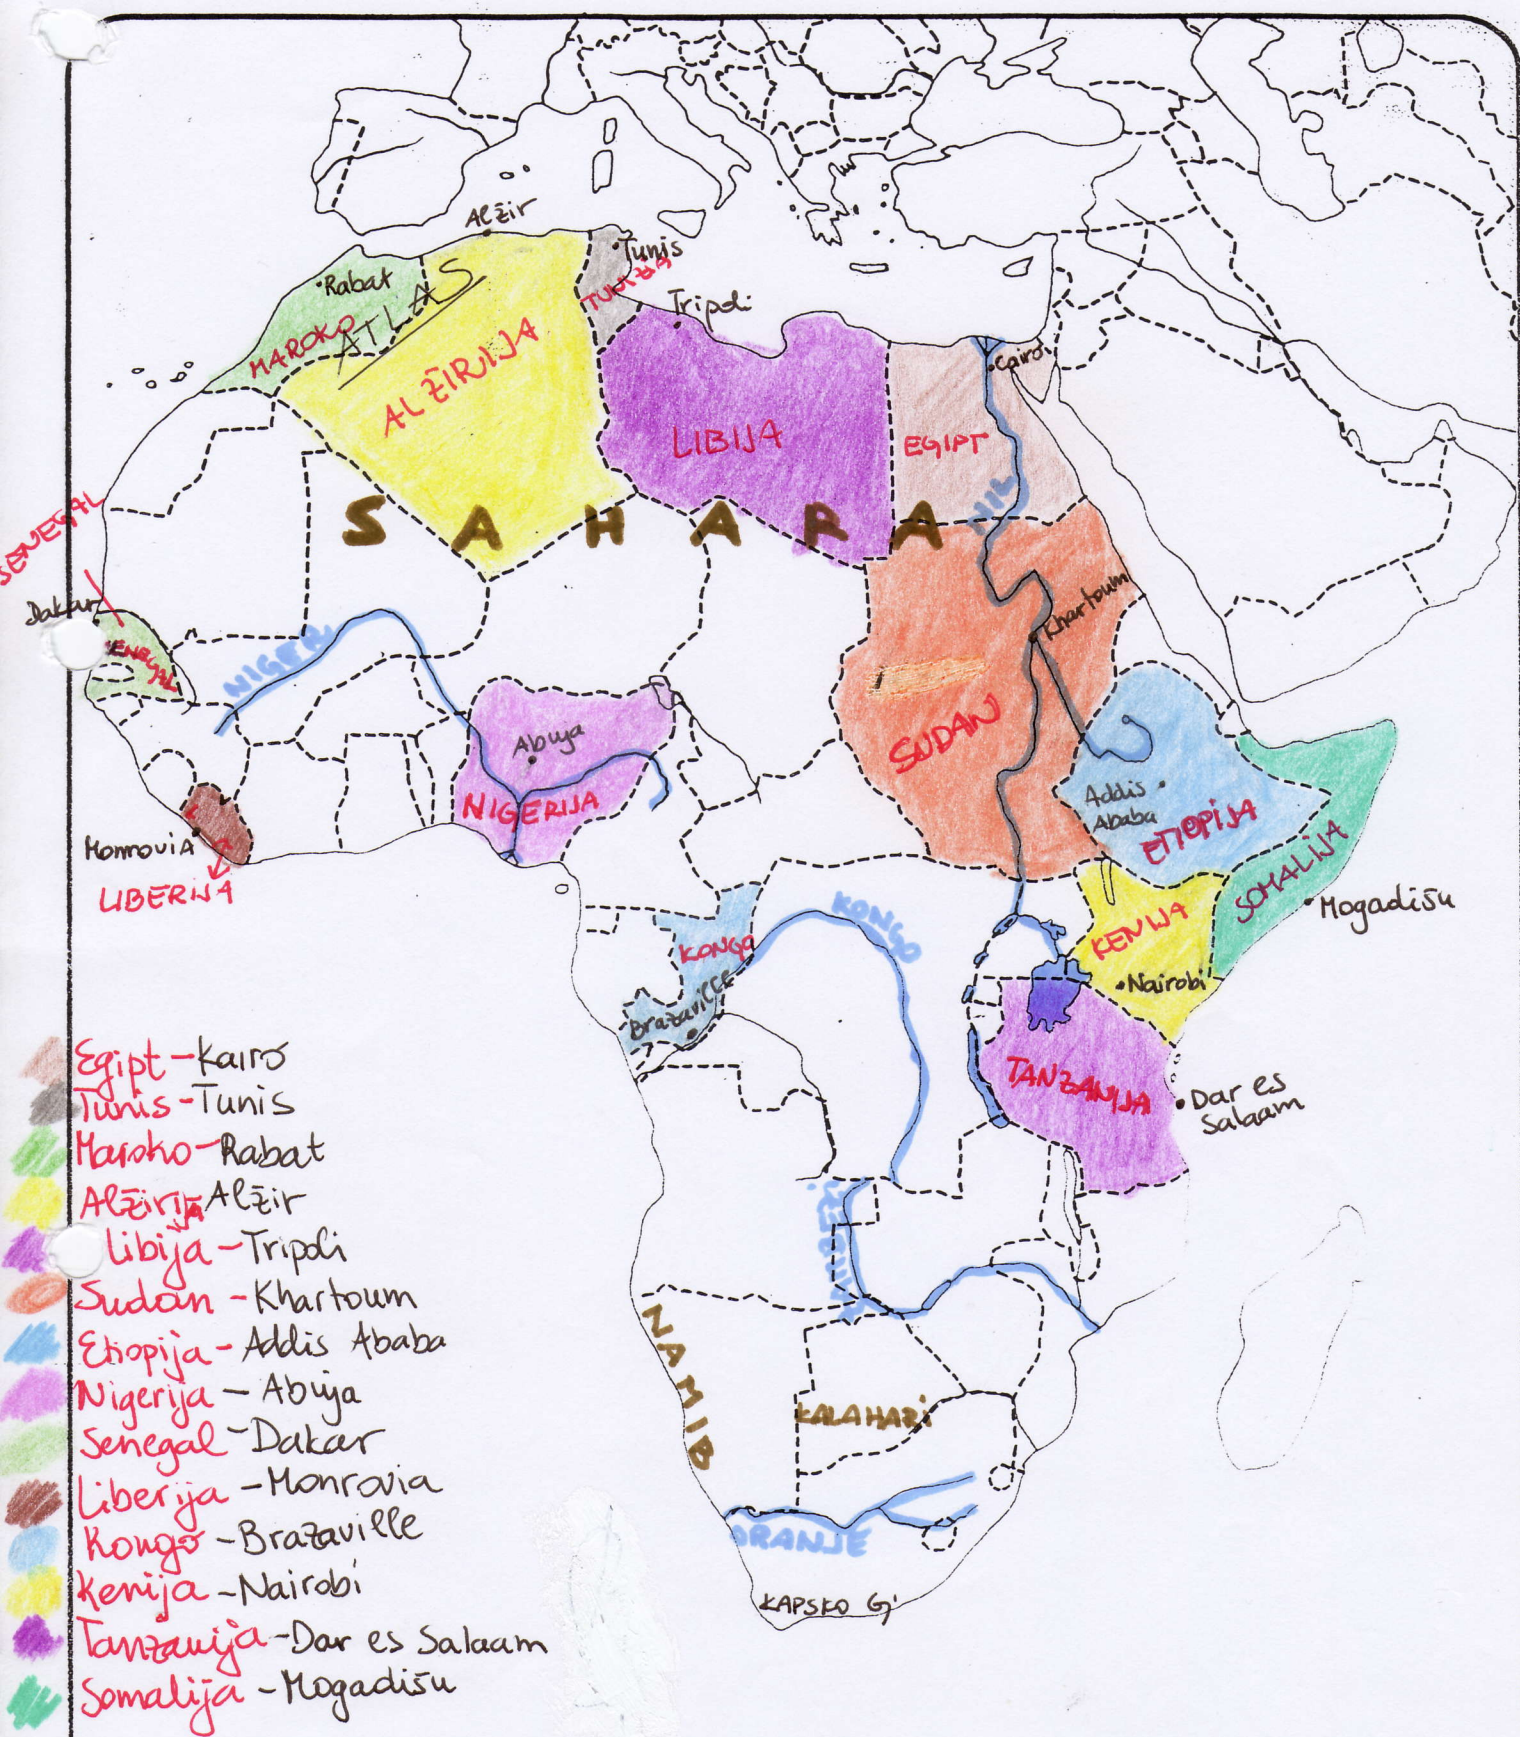 Alžir
Tunis
TUNIZA
Rabat
ATLAS
MAROKO
Tripoli
ALŽIRIJA
LIBIJA
Cairo
EGIPT
NIL
SAHARA
SENEGAL
Dakar
SENEGAL
NIGER
Khartoum
SUDAN
Abuja
NIGERIJA
Addis
Ababa
ETIOPIJA
SOMALIJA
Mogadišu
Monrovia
LIBERIJA
KONGO
KONGO
Brazaville
KENIJA
Nairobi
TANZANIJA
Dar es
Salaam
NAMIB
KALAHARI
ORANJE
KAPSKO G.
Egipt - Kairo
Tunis - Tunis
Maroko - Rabat
Alžirija - Alžir
Libija - Tripoli
Sudan - Khartoum
Etiopija - Addis Ababa
Nigerija - Abuja
Senegal - Dakar
Liberija - Monrovia
Kongo - Brazaville
Kenija - Nairobi
Tanzanija - Dar es Salaam
Somalija - Mogadišu